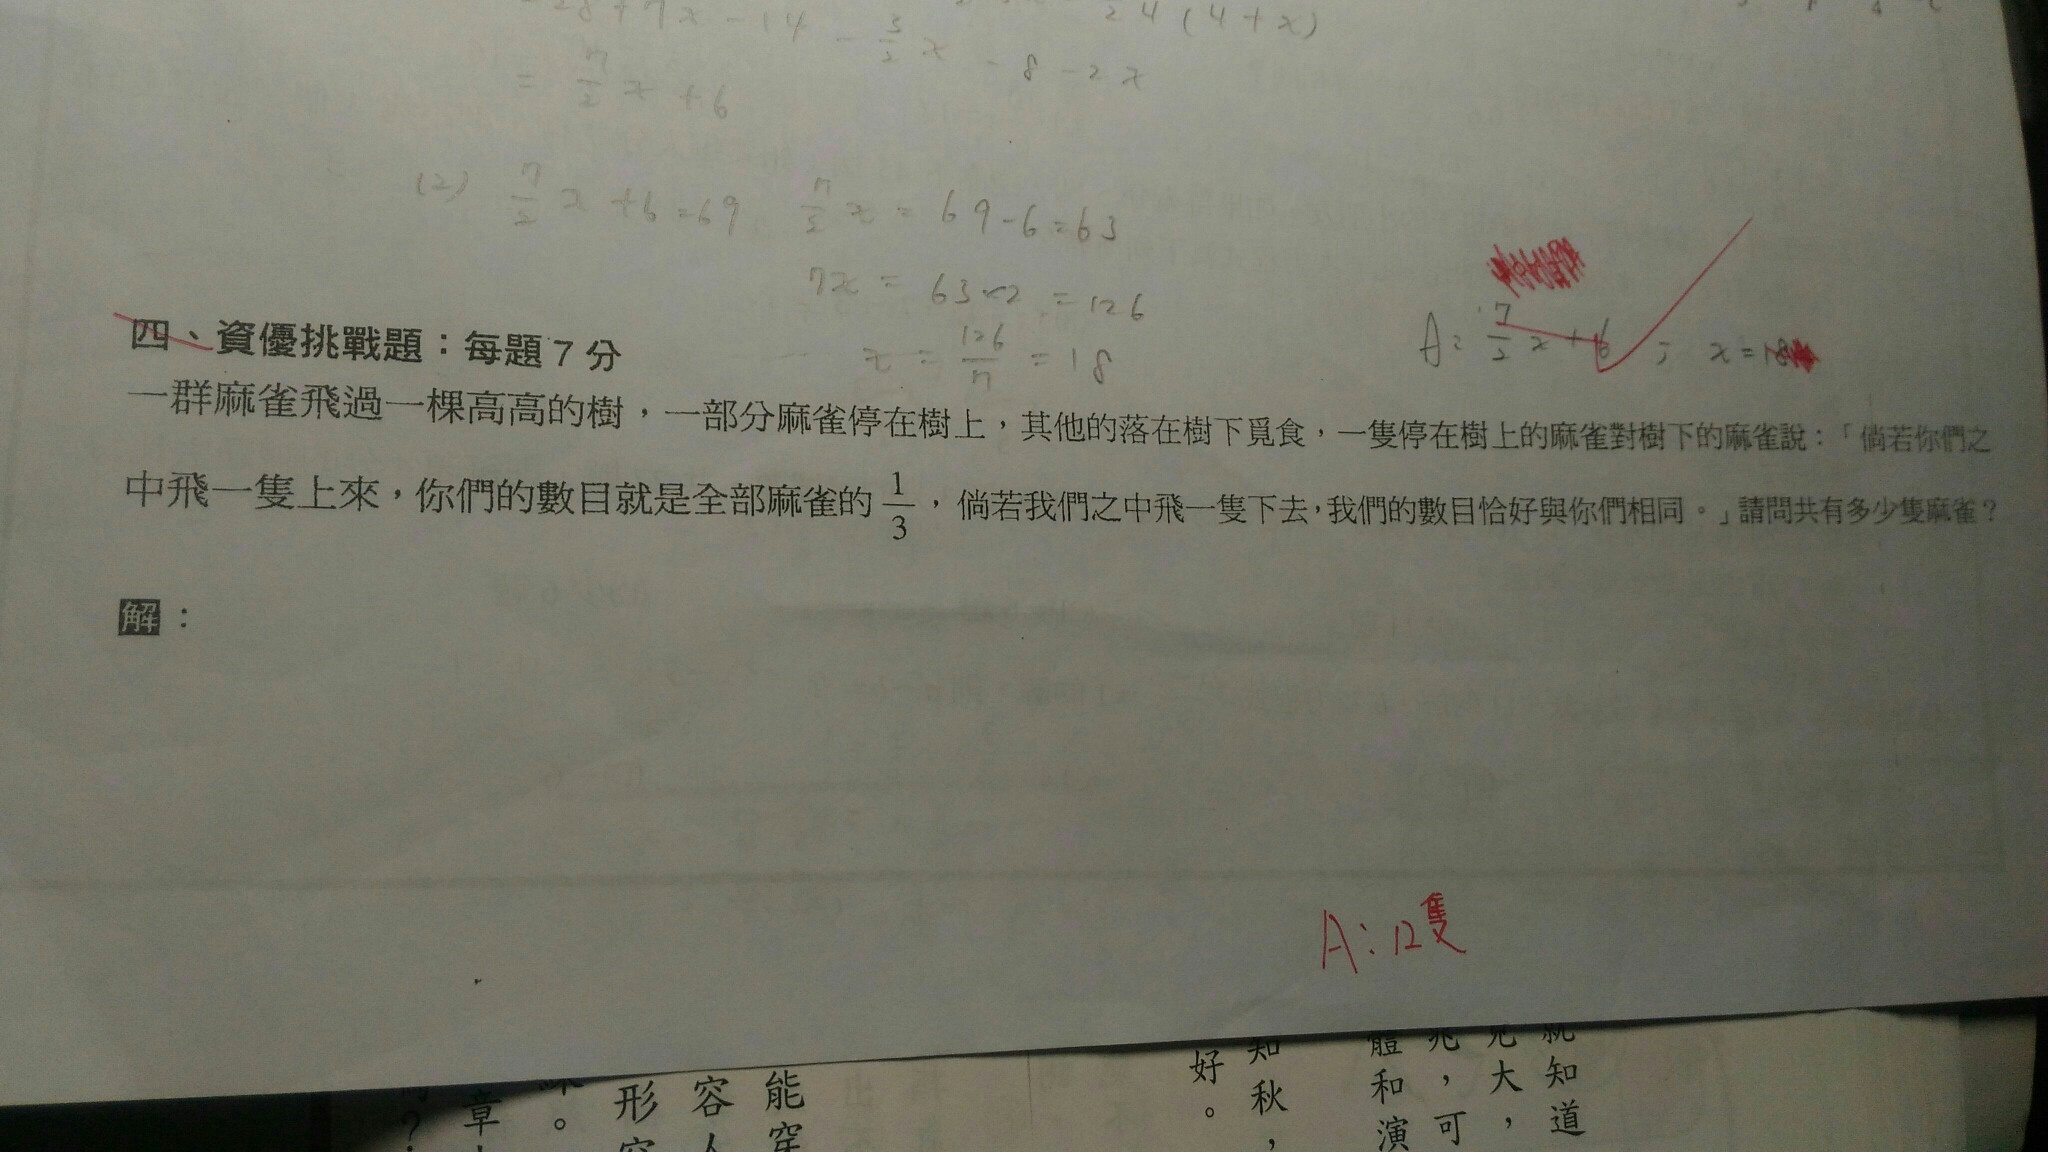 -28+7x-14-\frac{3}{2}x-8-2x
24(4+x)
= \frac{7}{2}x+6
(2) \frac{7}{2}x+6=69 \frac{7}{2}x=69-6=63
7x=63×2=126
x=\frac{126}{7}=18
A: \frac{7}{2}x+6; x=18
四、資優挑戰題：每題7分
一群麻雀飛過一棵高高的樹，一部分麻雀停在樹上，其他的落在樹下覓食，一隻停在樹上的麻雀對樹下的麻雀說：「倘若你們之
中飛一隻上來，你們的數目就是全部麻雀的\frac{1}{3}，倘若我們之中飛一隻下去，我們的數目恰好與你們相同。」請問共有多少隻麻雀？
解：
A:12隻
就知道
見大，
兆，可
體和演
知秋，
好。
能穿
容人
形容
。
章
？